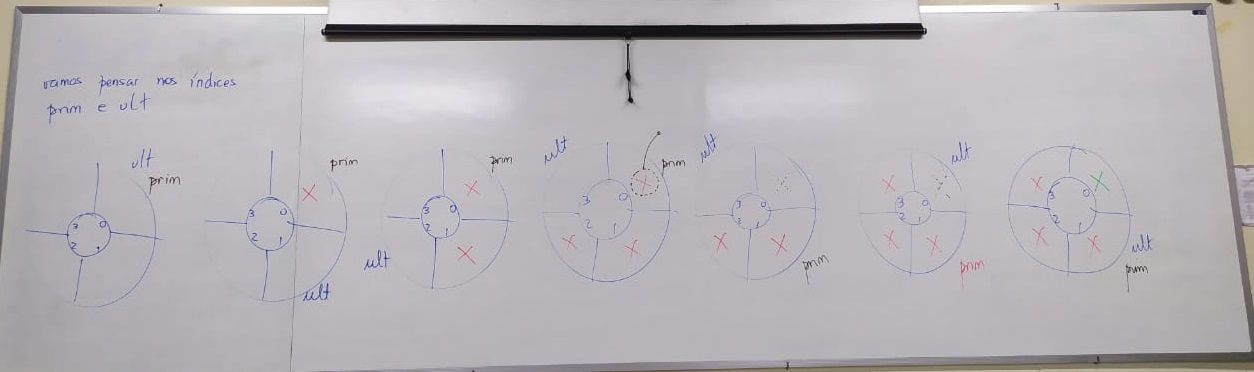 vamos pensar nos índices
prim e ult
ult
prim
3 0
2 1
prim
X
3 0
2 1
ult
prim
X
3 0
2 1
X
ult
ult
prim
X
3 0
2 1
X X
ult
3 0
2 1
X X
prim
ult
X
3 0
2 1
X X
prim
X X
3 0
2 1
X X
ult
prim